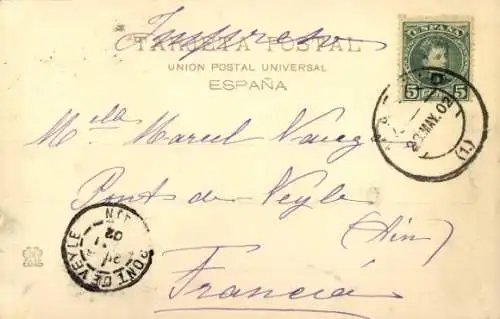 Impreso
TARJETA POSTAL
UNION POSTAL UNIVERSAL
ESPAÑA
ESPAÑA
5 5
MAY.02
(1.)
Mlle Marcel
Pont de Veyle
(Ain)
Francia
PONT DE VEYLE
JIN
02